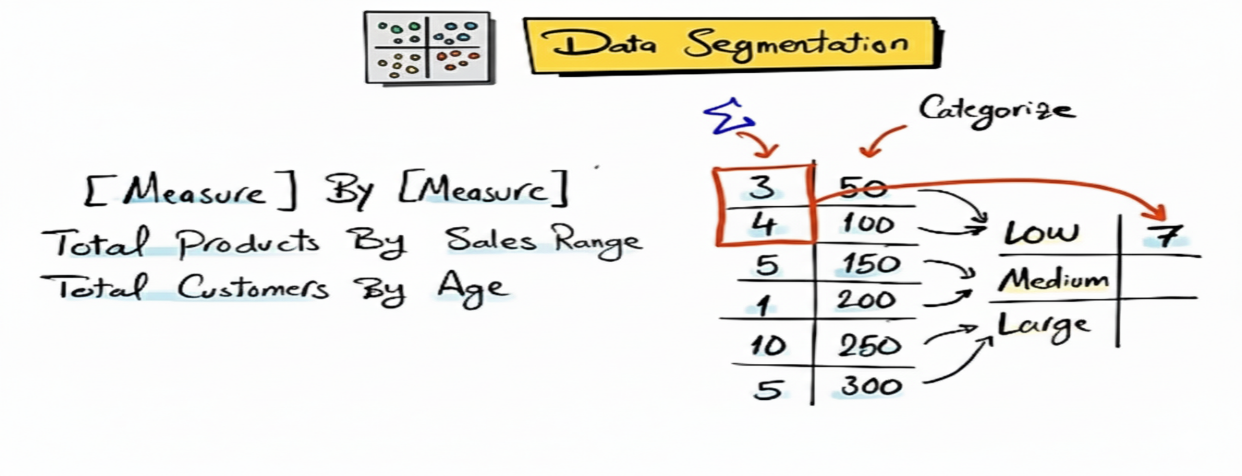 Data Segmentation
Σ
Categorize
[Measure] By [Measure]
Total Products By Sales Range
Total Customers By Age
3 50
4 100
5 150
1 200
10 250
5 300
Low 7
Medium
Large